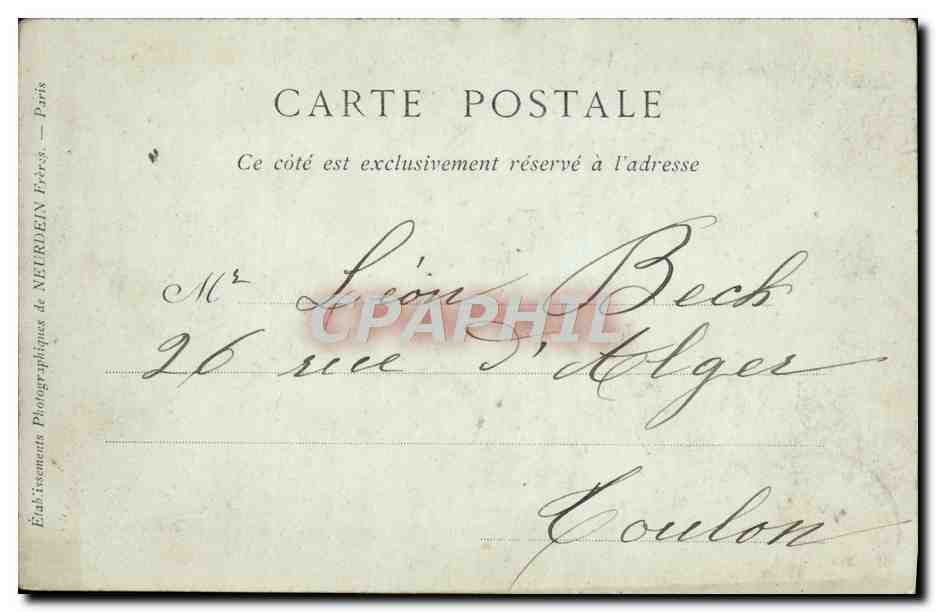 CARTE POSTALE
Ce côté est exclusivement réservé à l'adresse
Mr Léon Bech
CPAPHIL
26 rue d'Alger
Toulon
Établissements Photographiques de NEURDEIN Frères. — Paris